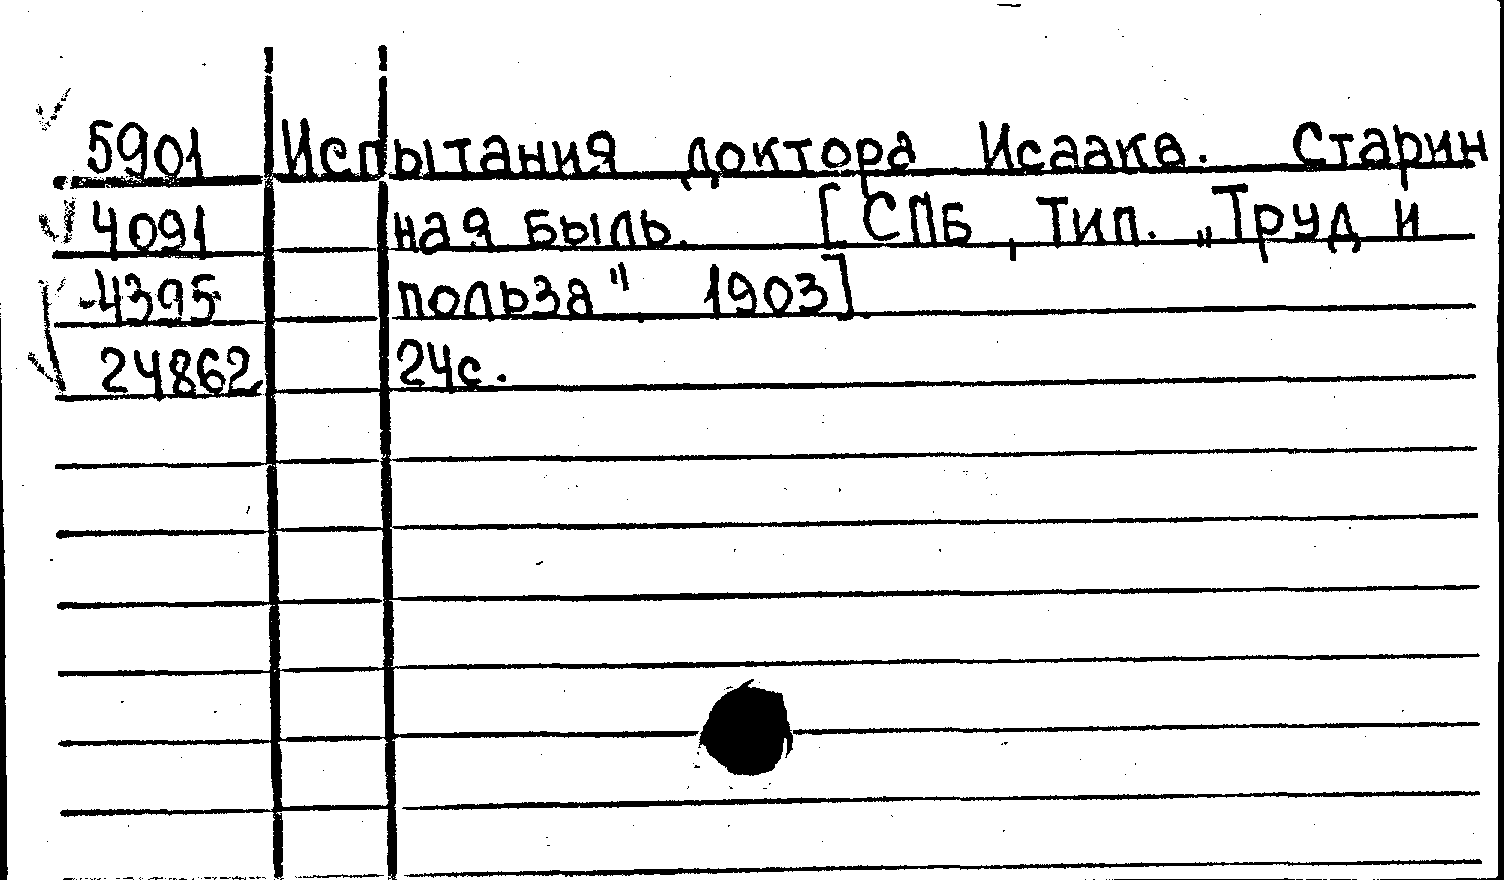 5901 Испытания доктора Исаака. Старин
4091 ная быль. [СПБ, Тип. „Труд и
4395 польза", 1903].
24862 24с.